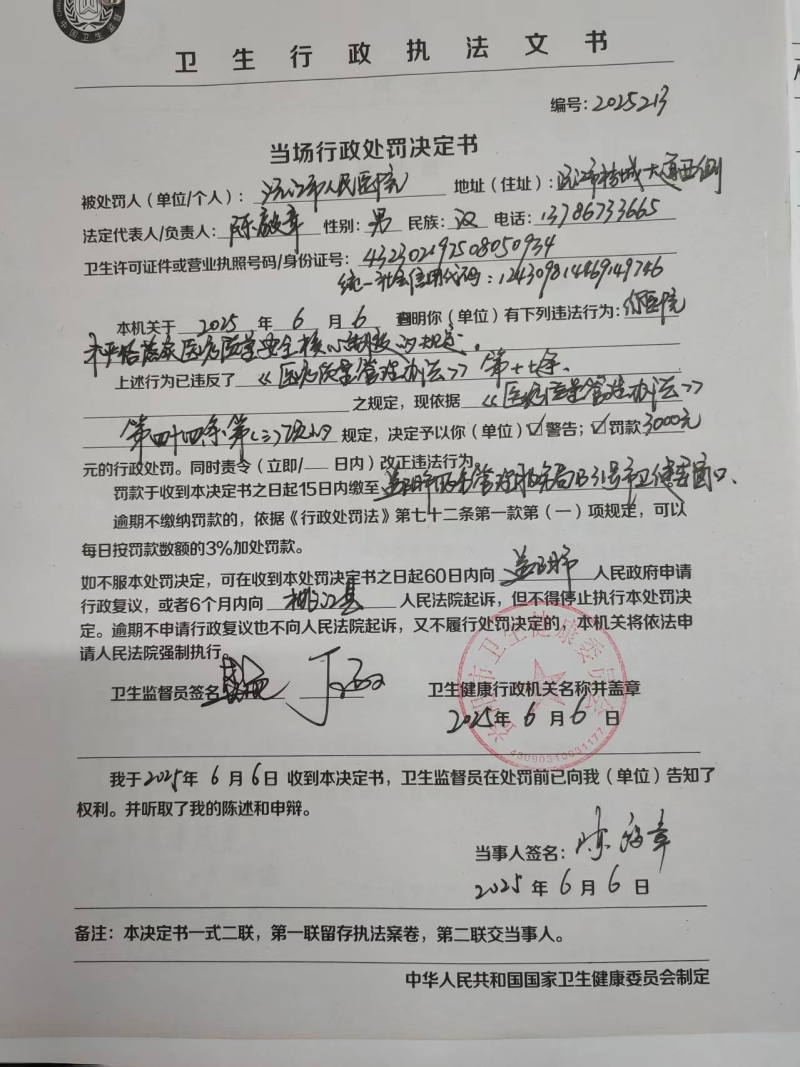 中国卫生监督
卫生行政执法文书
编号：2025213
当场行政处罚决定书
被处罚人（单位/个人）：沅江市人民医院 地址（住址）：沅江市桔城大道西侧
法定代表人/负责人：陈毅章 性别：男 民族：汉 电话：13786733665
卫生许可证件或营业执照号码/身份证号：432302197508050934
统一社会信用代码：124309814469149746
本机关于 2025 年 6 月 6 查明你（单位）有下列违法行为：你医院
未严格落实医疗质量安全核心制度的规定。
上述行为已违反了《医疗质量管理办法》第十七条
之规定，现依据《医疗质量管理办法》
第四十四条第（二）项的 规定，决定予以你（单位）☑警告；☑罚款 3000元
元的行政处罚。同时责令（立即/ 日内）改正违法行为。
罚款于收到本决定书之日起15日内缴至益阳市政务管理服务局B31号市卫健委窗口.
逾期不缴纳罚款的，依据《行政处罚法》第七十二条第一款第（一）项规定，可以
每日按罚款数额的3%加处罚款。
如不服本处罚决定，可在收到本处罚决定书之日起60日内向 益阳市 人民政府申请
行政复议，或者6个月内向 桃江县 人民法院起诉，但不得停止执行本处罚决
定。逾期不申请行政复议也不向人民法院起诉，又不履行处罚决定的，本机关将依法申
请人民法院强制执行。
卫生监督员签名： 卫生健康行政机关名称并盖章
2025年 6 月 6 日
益阳市卫生健康委员会
我于2025年 6月 6日 收到本决定书，卫生监督员在处罚前已向我（单位）告知了
权利。并听取了我的陈述和申辩。
当事人签名：陈毅章
2025 年 6 月 6 日
备注：本决定书一式二联，第一联留存执法案卷，第二联交当事人。
中华人民共和国国家卫生健康委员会制定